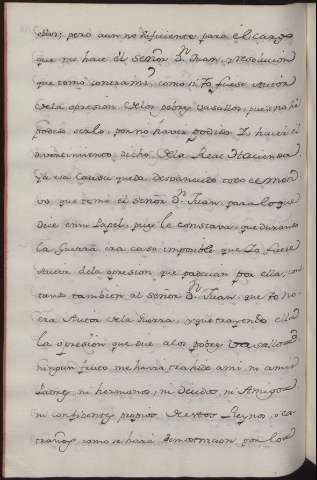 pero aun no suficiente para el cargo
que me hace el señor Dn. Juan, y resolucion
que tomó contra mi, como si Yo fuese Autor
de la opresion de los pobres vasallos, pues no há
podido serlo, por no haver podido Yo hacer el
divertimiento dicho de la Real Hacienda.
Ya esa Causa queda desvanecido todo el moti
vo que tomó el señor Dn. Juan, para lo que
dice en su Papel, pues le constava que durante
la Guerra era caso imposible que Yo fuese
Autor de la opresion que padecian por ella, cons
tando tambien al señor Dn. Juan, que Yo no
era Autor de la Guerra, y que trayendo ella
la opresion que a los pobres Vasallos,
ningun fruto me havrá trahido ami, ni amis
Padres, ni hermanos, ni Deudos, ni Amigos
ni confidentes propios de estos Reynos, o es
traños, como se hará demostracion por los